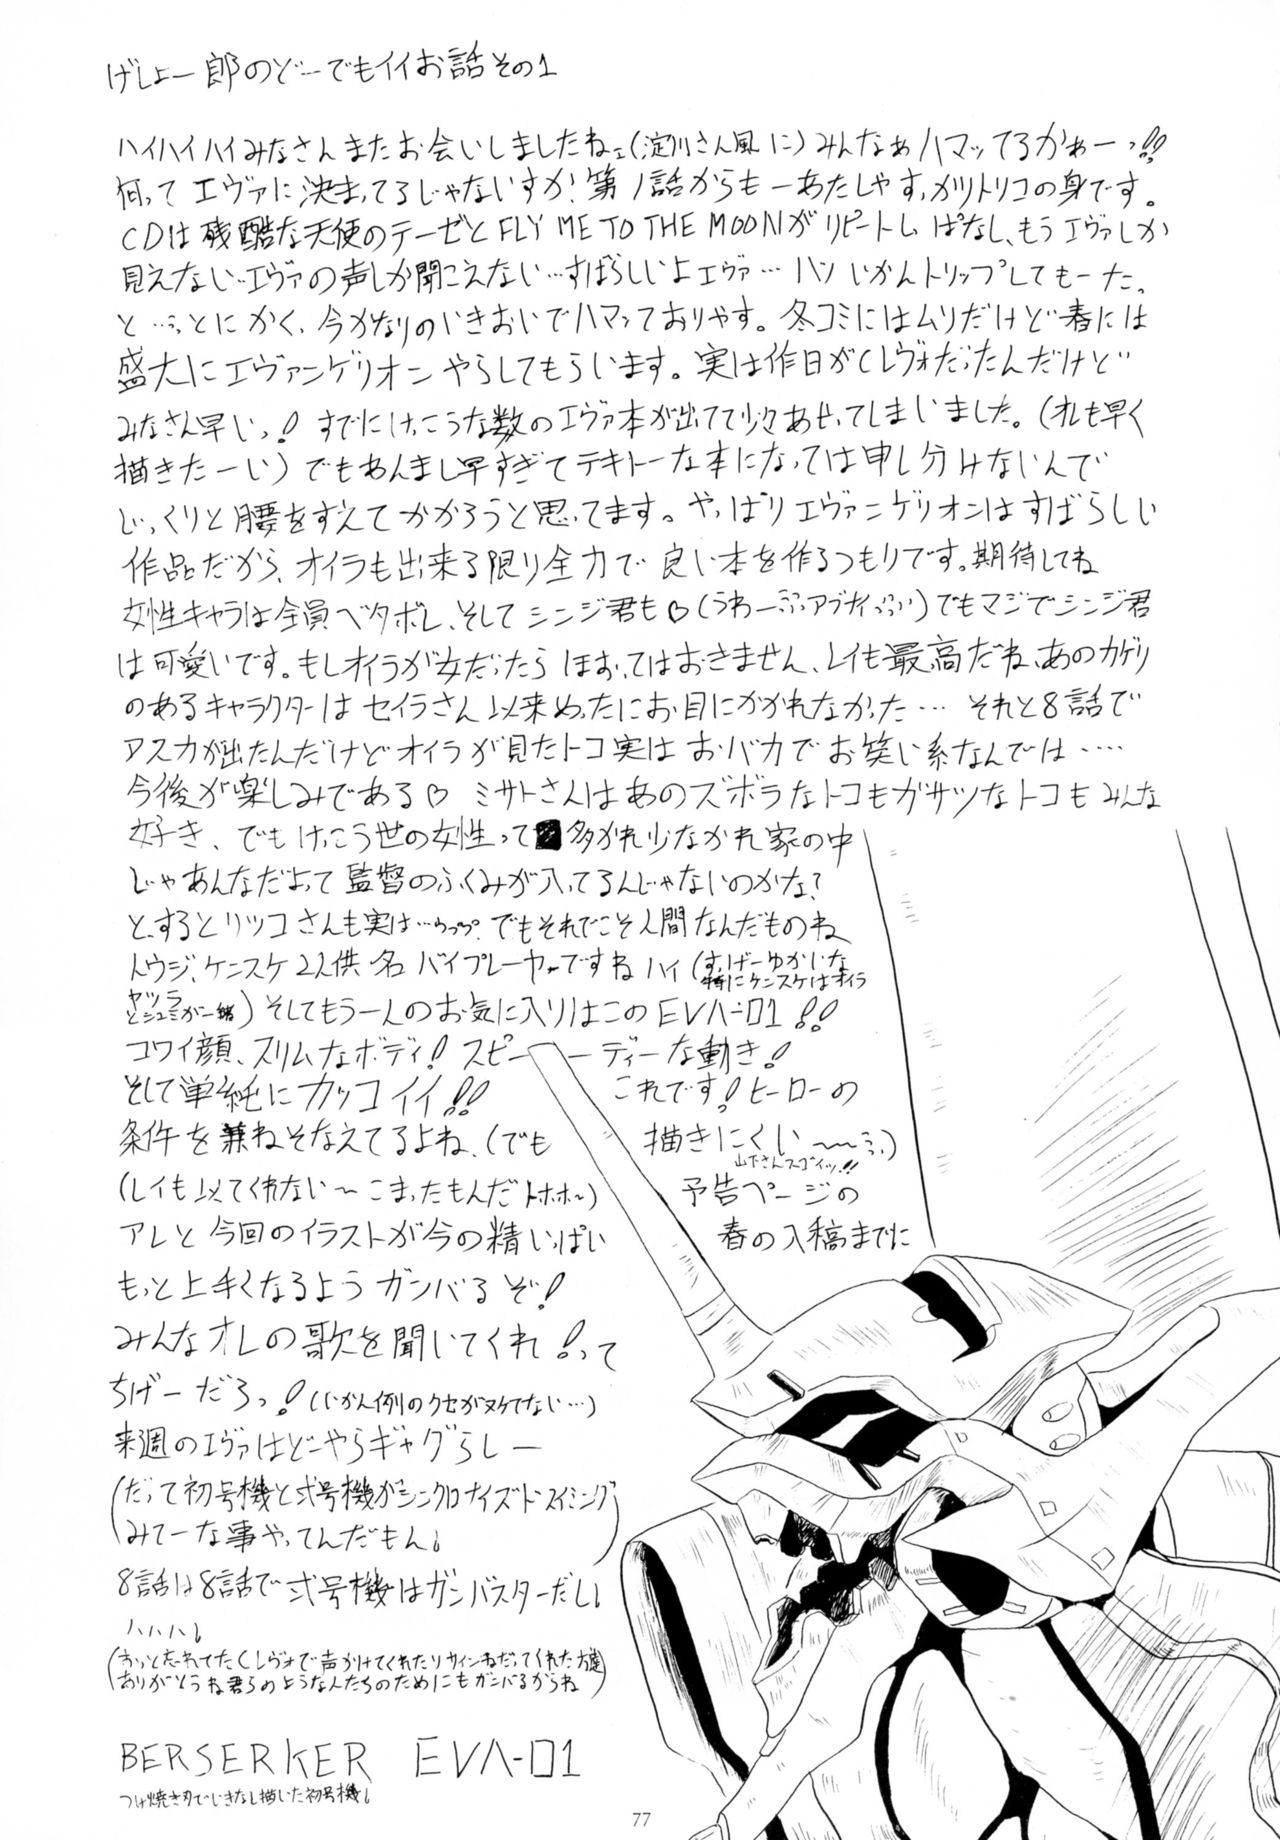 げしょー郎のどーでもイイお話その1
ハイハイハイみなさんまたお会いしましたねェ(淀川さん風に)みんなぁハマッてるかぁーっ!!
何ってエヴァに決まってるじゃないすか!第1話からもーあたしゃすっかりトリコの身です。
CDは残酷な天使のテーゼとFLY ME TO THE MOONがリピートしっぱなし、もうエヴァしか
見えない…エヴァの声しか聞こえない…すばらしいよエヴァ…ハッいかんトリップしてもーたっ
と…とにかく、今かなりのいきおいでハマッておりやす。冬コミにはムリだけど春には
盛大にエヴァンゲリオンやらしてもらいます。実は昨日がCレヴォだったんだけど
みなさん早いっ!すでにけっこうな数のエヴァ本が出てて少々あせってしまいました。(オレも早く
描きたーい)でもあんまし早すぎてテキトーな本になっては申し分けないんで
じっくりと腰をすえてかかろうと思ってます。やっぱりエヴァンゲリオンはすばらしい
作品だから、オイラも出来る限り全力で良い本を作るつもりです。期待してね
女性キャラは全員ベタボレ、そしてシンジ君も♡(うわーっアブナイっ)でもマジでシンジ君
は可愛いです。もしオイラが女だったらほおってはおきません、レイも最高だね、あのカゲリ
のあるキャラクターはセイラさん以来めったにお目にかかれなかった…それと8話で
アスカが出たんだけどオイラが見たトコ実はおバカでお笑い系なんでは……
今後が楽しみである♡ ミサトさんはあのズボラなトコもガサツなトコもみんな
好き、でもけっこう世の女性って多かれ少なかれ家の中
じゃあんなだよって監督のふくみが入ってるんじゃないのかな?
と、するとリッコさんも実は…でもそれでこそ人間なんだものね
トウジ、ケンスケ2人供名バイプレーヤーですねハイ(すっげーゆかいな
ヤツラ 特にケンスケはオイラ
とシュミが一緒)そしてもう一人のお気に入りはこのEVA-01!!
コワイ顔、スリムなボディ!スピーーディーな動き!
そして単純にカッコイイ!! これです!ヒーローの
条件を兼ねそなえてるよね、(でも 描きにくい〜〜)
山下さんスゴイッ!!
(レイも似てくれない〜こまったもんだトホホ〜) 予告ページの
アレと今回のイラストが今の精いっぱい 春の入稿までに
もっと上手くなるようガンバるぞ!
みんなオレの歌を聞いてくれ!って
ちげーだろっ!(いかん例のクセがヌケてない…)
来週のエヴァはどーやらギャグらしー
(だって初号機と弐号機がシンクロナイズドスイミング
みてーな事やってんだもん)
8話は8話で弐号機はガンバスターだし
ハハハ
(おっと忘れてたCレヴォで声かけてくれたりサインねだってくれた方達
ありがとうね君らのような人たちのためにもガンバるからね)
BERSERKER EVA-01
つけ焼き刃でいきなし描いた初号機
77